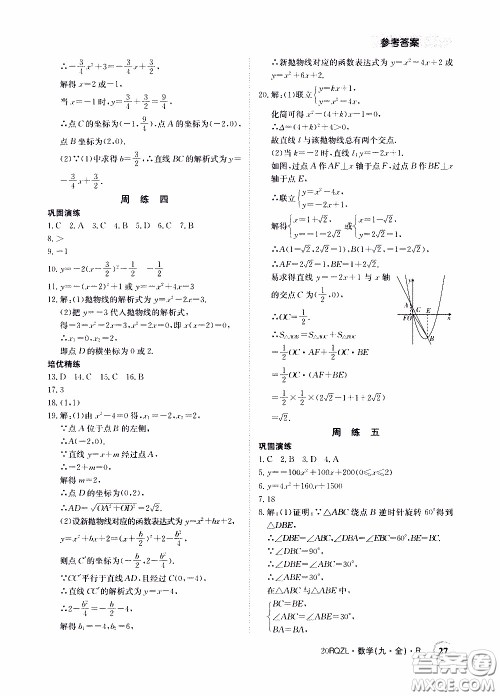 参考答案
∴-3/4x²+3=-3/4x+3/2.
解得 x=2 或-1,
当 x=-1时,y=9/4,
∴点 C 的坐标为(-1,9/4),点 A 的坐标为(0,3/2).
(2)∵(1)中求得 b=3/2,∴直线 BC 的解析式为 y=
-3/4x+3/2.
周 练 四
巩固演练
1.C 2.A 3.C 4.B 5.D 6.C 7.B
8.>
9.-1
10.y=-2(x-3/2)²-1/2
11.y=-(x-2)²+1 或 y=-x²+4x-3
12.解:(1)抛物线的解析式为 y=x²-2x-3.
(2)把 y=-3 代入抛物线的解析式,
得-3=x²-2x-3,解得 x₁=0,x₂=2.
即点 D 的横坐标为 0 或 2.
培优精练
13.D 14.C 15.C 16.B
17.3
18.(1,1)
19.解:(1)由 x²-4=0 得,x₁=-2,x₂=2.
∵点 A 位于点 B 的左侧,
∴A(-2,0).
∵直线 y=x+m 经过点 A,
∴-2+m=0.
解得 m=2.
∴点 D 的坐标为(0,2).
∴AD=√(OA²+OD²)=2√2.
(2)设新抛物线对应的函数表达式为 y=x²+bx+2,
y=x²+bx+2=(x+b/2)²+2-b²/4.
则点 C′的坐标为(-b/2,2-b²/4).
∵CC′平行于直线 AD,且经过 C(0,-4),
∴直线 CC′的解析式为 y=x-4.
∴2-b²/4=-b/2-4.
解得 b₁=-4,b₂=6.
∴新抛物线对应的函数表达式为 y=x²-4x+2 或
y=x²+6x+2.
20.解:(1)联立{y=kx+1, y=x²-4x,
化简可得 x²-(4+k)x-1=0,
∴Δ=(4+k)²+4>0,
故直线 l 与该抛物线总有两个交点.
(2)当 k=-2 时,直线 l:y=-2x+1,
如图,过点 A 作 AF⊥x 轴于点 F,过点 B 作 BE⊥x
轴于点 E,
∴联立{y=x²-4x, y=-2x+1,
解得{x=1+√2, y=-1-2√2或{x=1-√2, y=2√2-1.
∴A(1-√2,2√2-1),B(1+√2,-1-2√2).
∴AF=2√2-1,BE=1+2√2.
易求得直线 y=-2x+1 与 x 轴
的交点 C 为(1/2,0).
∴OC=1/2.
∴S△AOB=S△AOC+S△BOC
=1/2OC·AF+1/2OC·BE
=1/2OC(AF+BE)
=1/2×1/2×(2√2-1+1+2√2)
=√2.
周 练 五
巩固演练
1.C 2.B 3.D 4.A
5.y=-100x²+100x+200(0≤x≤2)
6.y=4x²+160x+1500
7.18
8.解:(1)证明:∵△ABC 绕点 B 逆时针旋转 60°得到
△DBE,
∴∠DBE=∠ABC,∠EBC=60°,BE=BC.
∵∠DBC=90°,
∴∠DBE=∠ABC=30°.
∴∠ABE=30°.
在△ABC 与△ABE 中,
{BC=BE,
∠ABC=∠ABE=30°,
BA=BA,
20RQZL·数学(九·全)·R 27